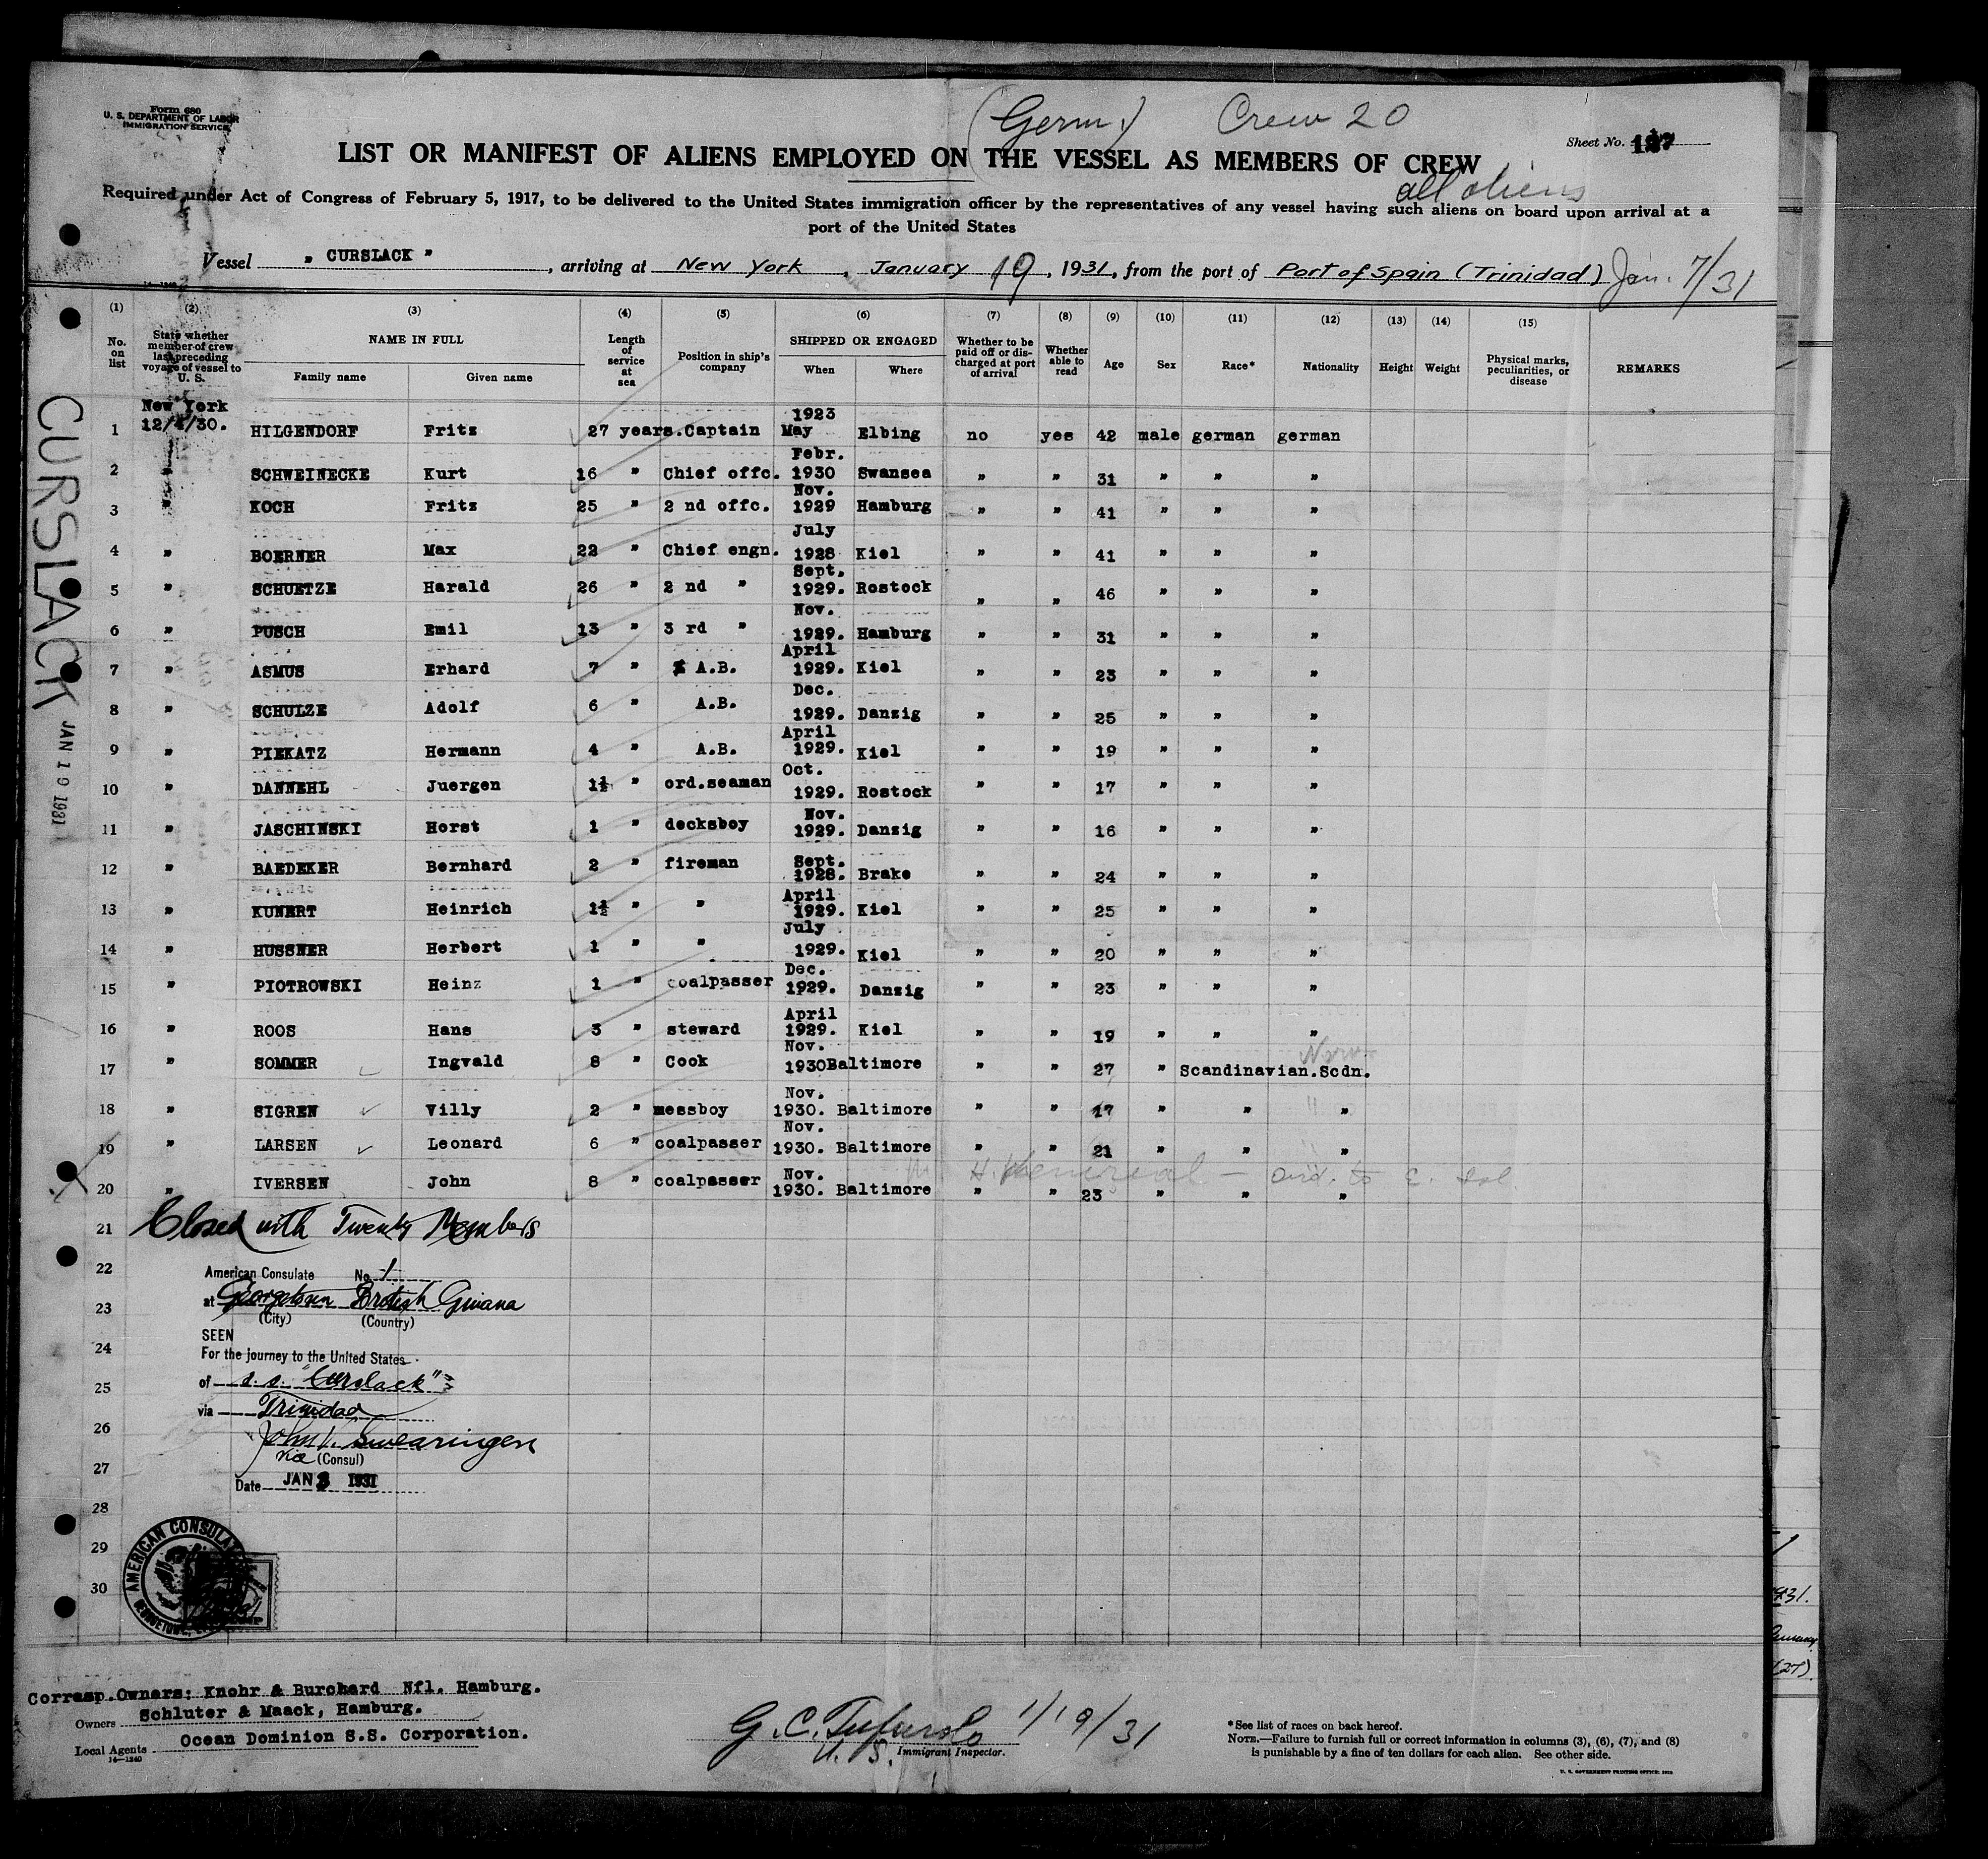 Form 680
U. S. DEPARTMENT OF LABOR
IMMIGRATION SERVICE
(Germ.) Crew 20
Sheet No.
LIST OR MANIFEST OF ALIENS EMPLOYED ON THE VESSEL AS MEMBERS OF CREW
all aliens
Required under Act of Congress of February 5, 1917, to be delivered to the United States immigration officer by the representatives of any vessel having such aliens on board upon arrival at a
port of the United States
Vessel " CURSLACK ", arriving at New York, January 19, 1931, from the port of Port of Spain (Trinidad) Jan. 7/31
(1) (2) (3) (4) (5) (6) (7) (8) (9) (10) (11) (12) (13) (14) (15)
No. on list
State whether member of crew last preceding voyage of vessel to U. S.
NAME IN FULL
Family name Given name
Length of service at sea
Position in ship's company
SHIPPED OR ENGAGED
When Where
Whether to be paid off or discharged at port of arrival
Whether able to read
Age Sex Race* Nationality Height Weight
Physical marks, peculiarities, or disease
REMARKS
New York
1 12/ /30. HILGENDORF Fritz 27 years. Captain 1923 May Elbing no yes 42 male german german
2 " SCHWEINECKE Kurt 16 " Chief offc. Febr. 1930 Swansea " " 31 " " "
3 " KOCH Fritz 25 " 2 nd offc. Nov. 1929 Hamburg " " 41 " " "
4 " BOERNER Max 22 " Chief engn. July 1928 Kiel " " 41 " " "
5 " SCHUETZE Harald 26 " 2 nd " Sept. 1929. Rostock " " 46 " " "
6 " PUSCH Emil 13 " 3 rd " Nov. 1929. Hamburg " " 31 " " "
7 " ASMUS Erhard 7 " A.B. April 1929. Kiel " " 23 " " "
8 " SCHULZE Adolf 6 " A.B. Dec. 1929. Danzig " " 25 " " "
9 " PIEKATZ Hermann 4 " A.B. April 1929. Kiel " " 19 " " "
10 " DANNEHL Juergen 1½ " ord.seaman Oct. 1929. Rostock " " 17 " " "
11 " JASCHINSKI Horst 1 " decksboy Nov. 1929. Danzig " " 16 " " "
12 " BAEDEKER Bernhard 2 " fireman Sept. 1928. Brake " " 24 " " "
13 " KUNERT Heinrich 1½ " " April 1929. Kiel " " 25 " " "
14 " HUSSNER Herbert 1 " " July 1929. Kiel " " 20 " " "
15 " PIOTROWSKI Heinz 1 " coalpasser Dec. 1929. Danzig " " 23 " " "
16 " ROOS Hans 3 " steward April 1929. Kiel " " 19 " " "
Norw.
17 " SOMMER Ingvald 8 " Cook Nov. 1930 Baltimore " " 27 " Scandinavian. Scdn.
18 " SIGREN Villy 2 " messboy Nov. 1930. Baltimore " " 17 " " "
19 " LARSEN Leonard 6 " coalpasser Nov. 1930. Baltimore " " 21 " " "
Venereal — to E. Isl.
20 " IVERSEN John 8 " coalpasser Nov. 1930. Baltimore " " 23 " " "
21 Closed with Twenty Members
22 American Consulate No. 1
23 at Georgetown British Guiana
(City) (Country)
SEEN
24 For the journey to the United States
25 of s.s. "Curslack"
via Trinidad
26 John Swearingen
Vice (Consul)
27 Date JAN 3 1931
28
29
30
AMERICAN CONSULATE
CURSLACK
JAN 19 1931
Corresp.Owners: Knohr & Burchard Nfl. Hamburg.
Owners Schluter & Maack, Hamburg.
Local Agents Ocean Dominion S.S. Corporation.
14—1240
G. C. 1/19/31
U. S. Immigrant Inspector.
*See list of races on back hereof.
NOTE.—Failure to furnish full or correct information in columns (3), (6), (7), and (8)
is punishable by a fine of ten dollars for each alien. See other side.